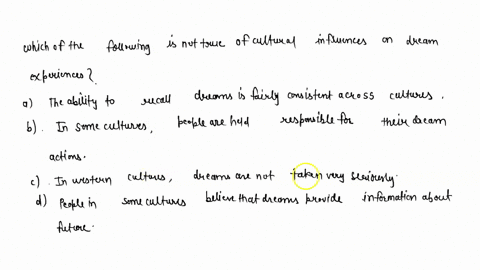 which of the following is not true of cultural influences on dream
experiences?
a) The ability to recall dreams is fairly consistent across cultures.
b). In some cultures, people are held responsible for their dream
actions.
c). In western cultures, dreams are not taken very seriously.
d) People in some cultures believe that dreams provide information about
future.